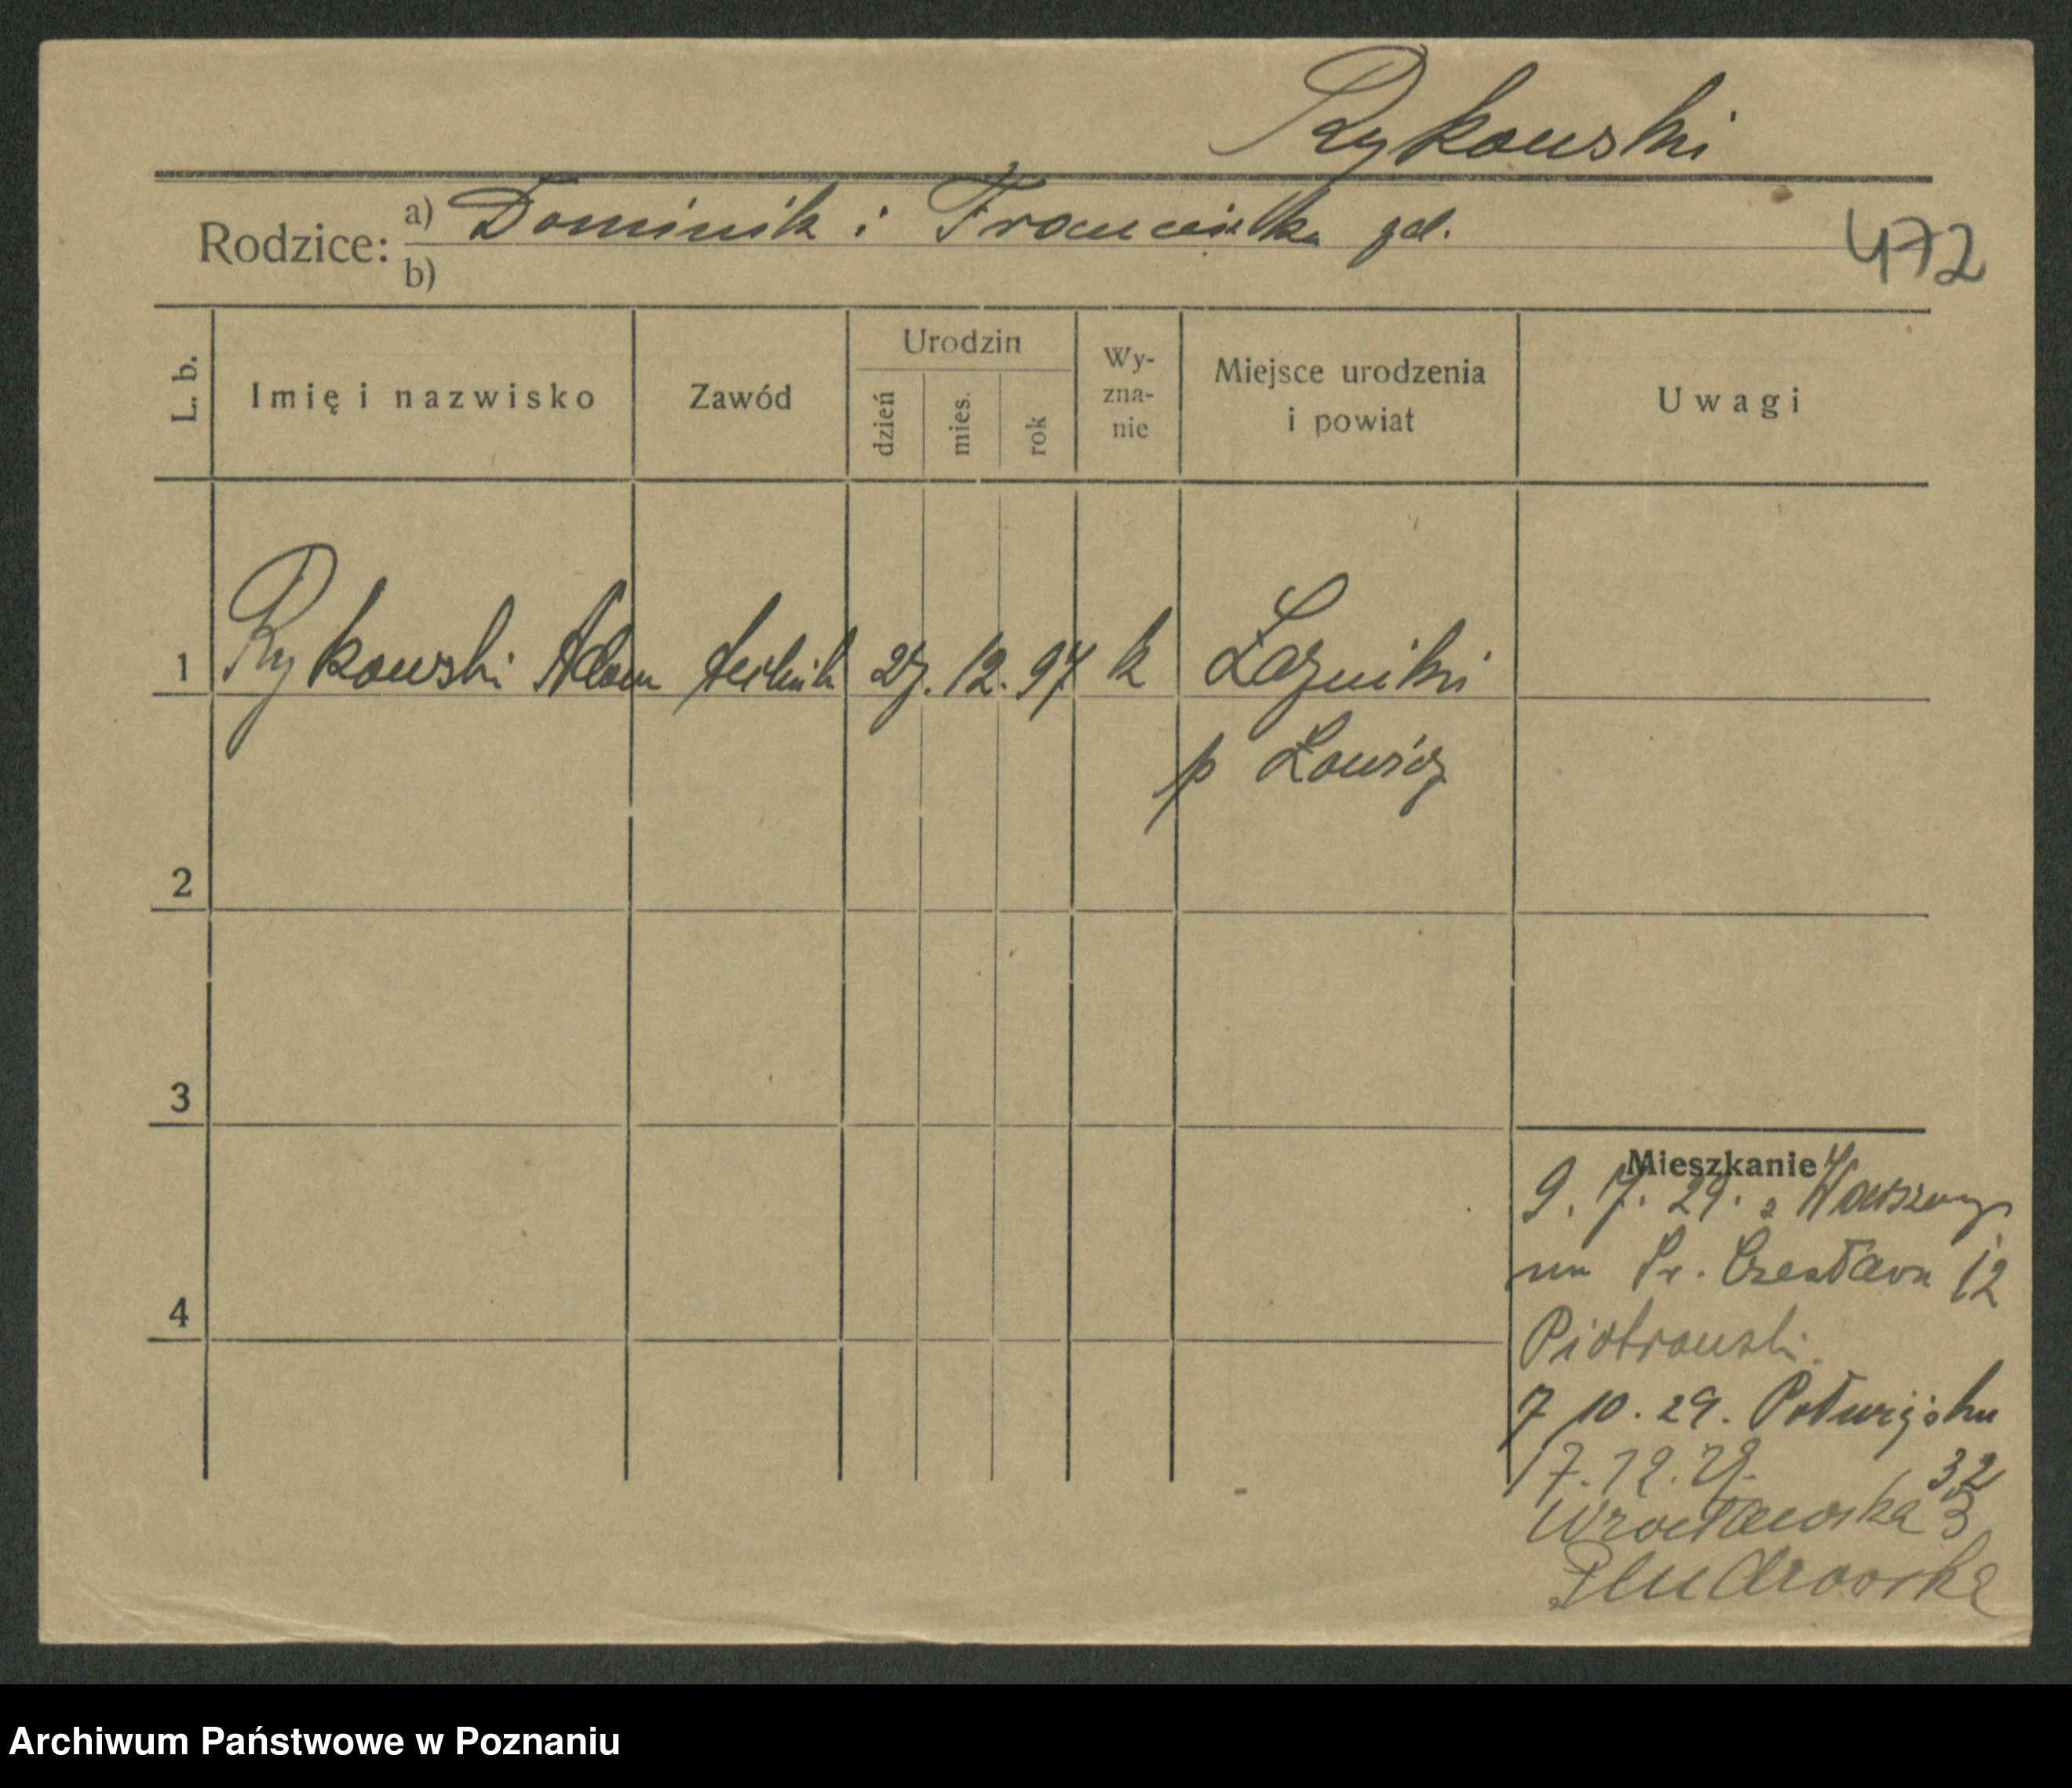 Rykowski
Rodzice: a) Dominik i Franciszka
b)
472
L. b. Imię i nazwisko Zawód Urodzin dzień mies. rok Wy-zna-nie Miejsce urodzenia i powiat Uwagi
1 Rykowski Adam technik 27. 12. 97 k Łaźniki
p Łowicz
2
3
Mieszkanie
9. 7. 29. z Warszawy
na Św. Czesława 12
4
Piotrowski
7 10. 29. Półwiejska
32
17. 12. 29.
Wrocławska 3
Archiwum Państwowe w Poznaniu